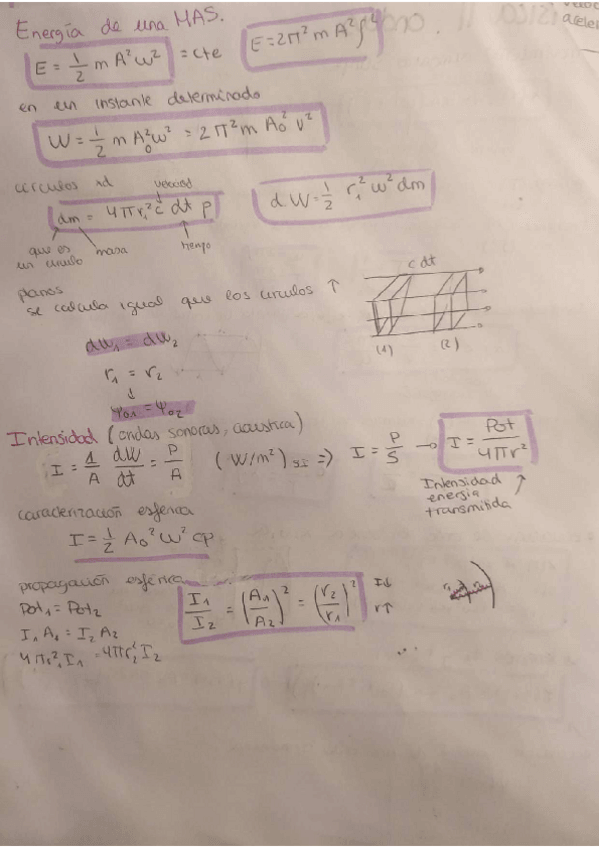 Energía de una MAS.
E = 1/2 m A² ω² = cte
E = 2π² m A² f²
en un instante determinado
W = 1/2 m A₀² ω² = 2π² m A₀² ν²
velocidad
dm = 4πr₁² c dt ρ
dW = 1/2 r₁² ω² dm
que es un círculo
masa
tiempo
planos
se calcula igual que los círculos ↑
c dt
(1) (2)
dW₁ = dW₂
r₁ = r₂
↓
ψ₀₁ = ψ₀₂
Intensidad (ondas sonoras, acústica)
I = 1/A dW/dt = P/A (W/m²) SI ⇒ I = P/S → I = Pot/4πr²
Intensidad
energía
transmitida
caracterización esférica
I = 1/2 A₀² ω² cρ
propagación esférica
Pot₁ = Pot₂
I₁/I₂ = (A₁/A₂)² = (r₂/r₁)²
I↓
r↑
I₁ A₁ = I₂ A₂
4πr₁² I₁ = 4πr₂² I₂
...